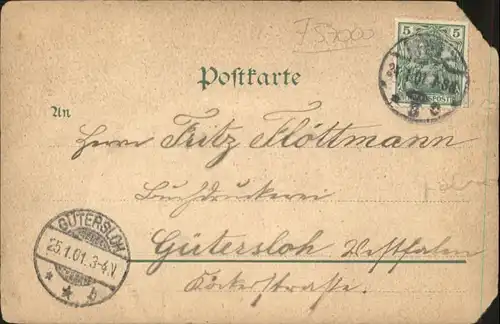 5 5
Postkarte
An
Herrn Fritz Flöttmann
Buchdruckerei
Gütersloh Westfalen
Kökerstraße.
GÜTERSLOH
25.1.01.3-4.V
* * b